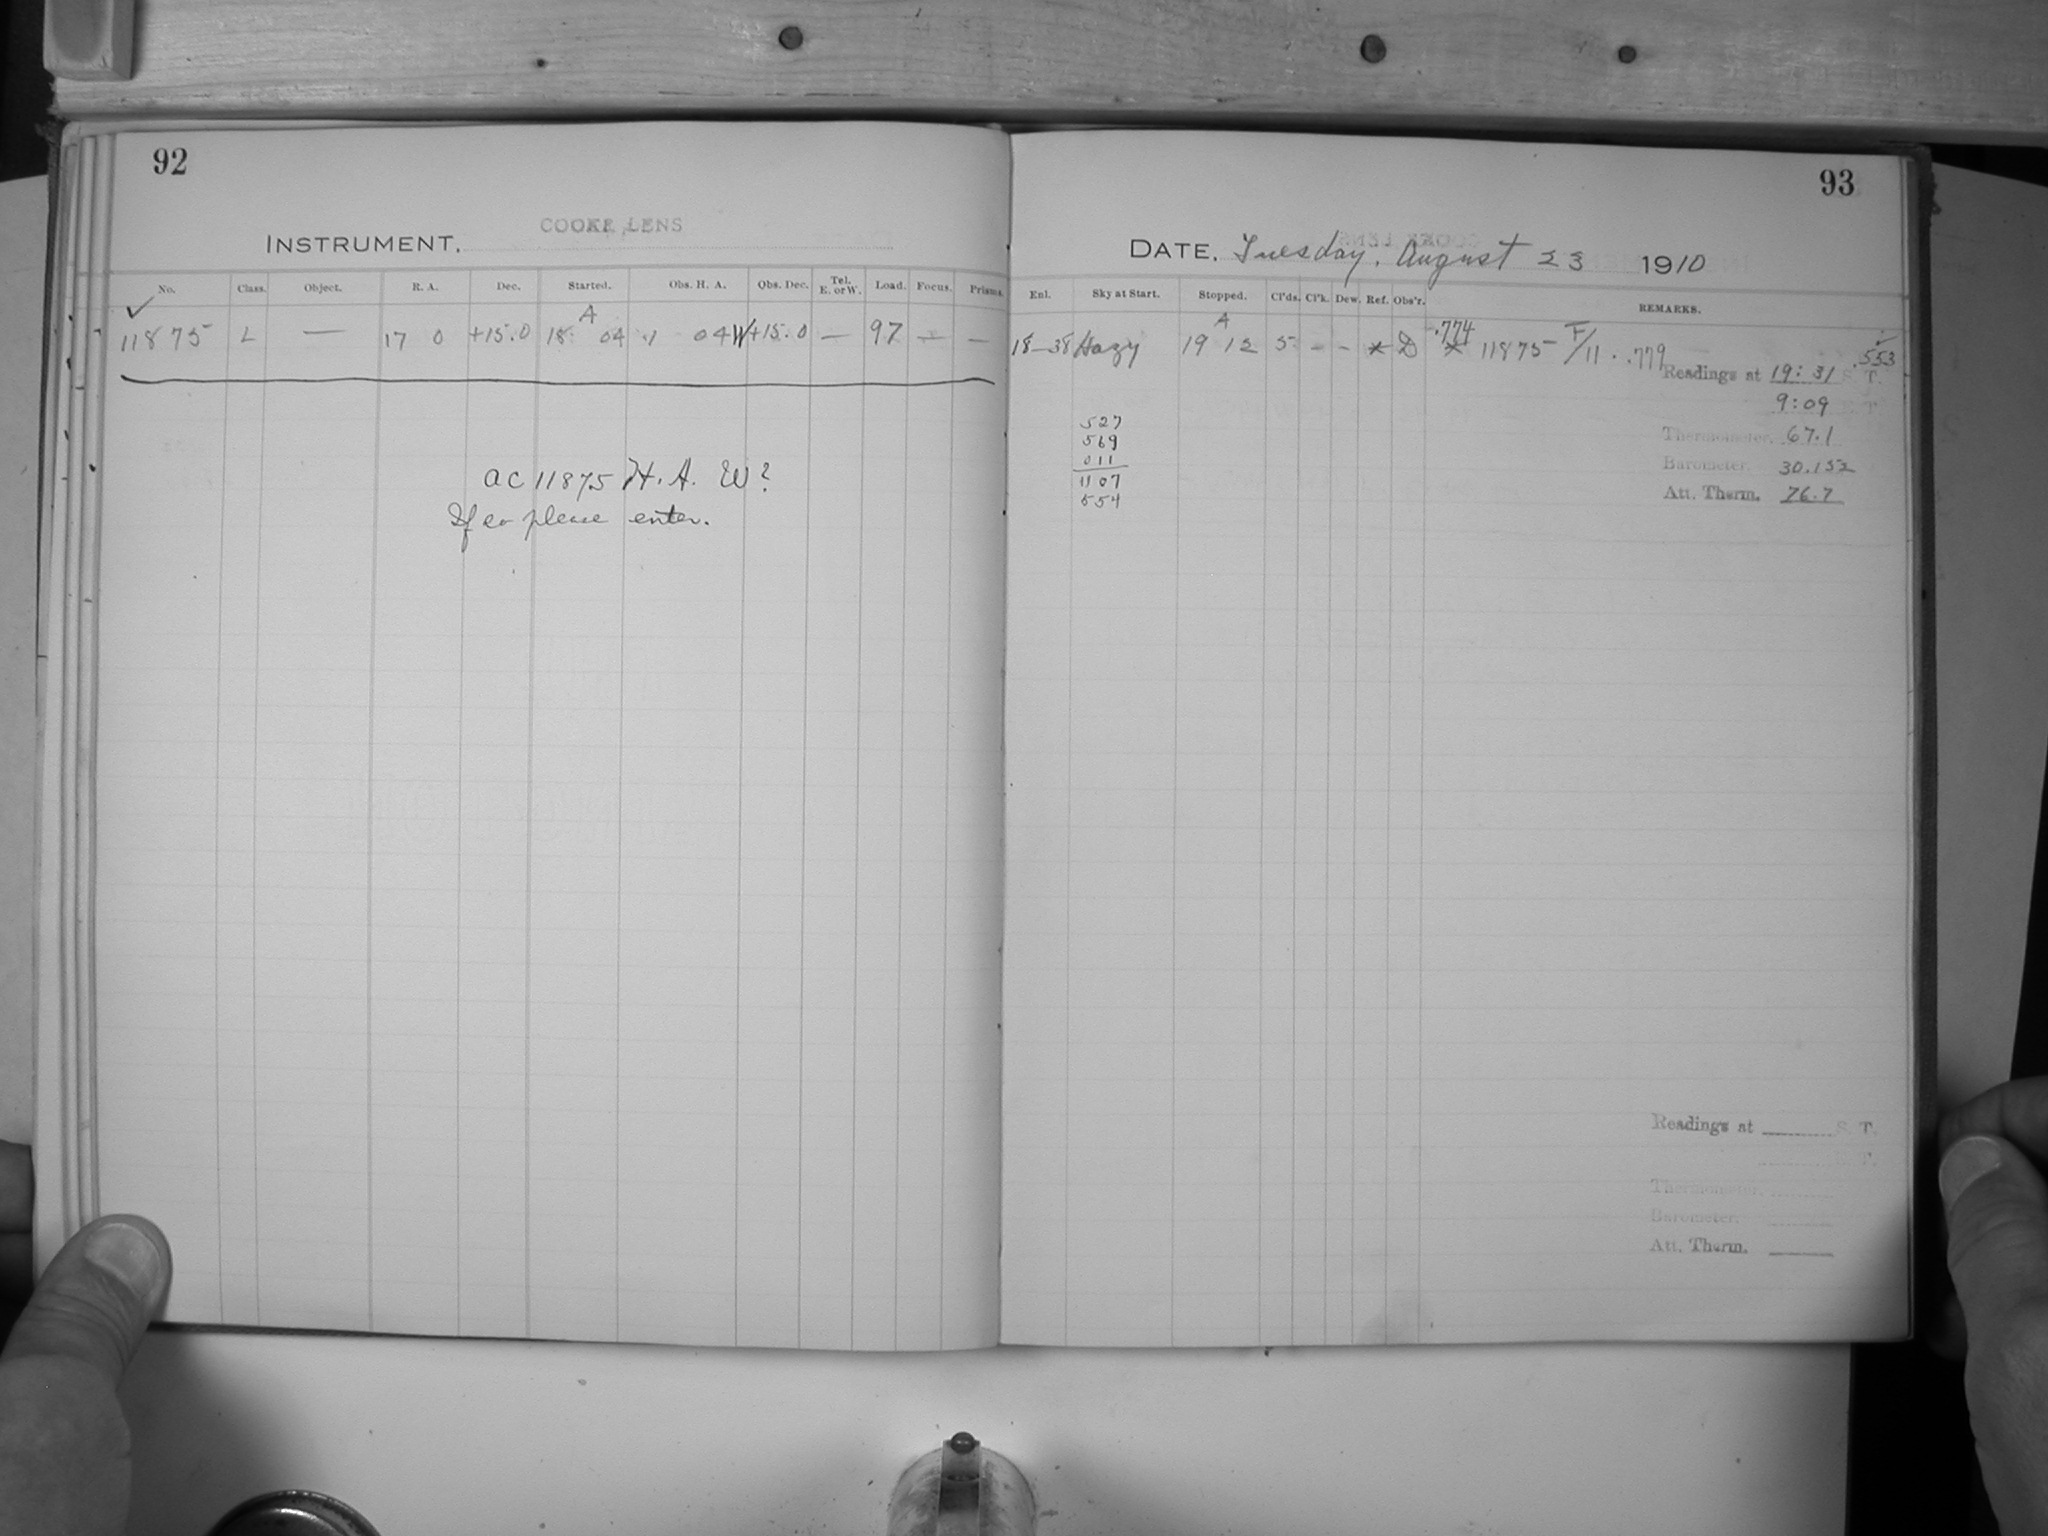 92
COOKE LENS
INSTRUMENT.
No. Class. Object. R. A. Dec. Started. Obs. H. A. Obs. Dec. Tel. E. or W. Load. Focus. Prisms.
✓ A
11875 L — 17 0 +15.0 18 04 1 04 W +15.0 — 97 — —
ac 11875 H. A. W?
If so please enter.
93
DATE. Tuesday. August 23 1910
Enl. Sky at Start. Stopped. Cl'ds. Cl'k. Dew. Ref. Obs'r. REMARKS.
A .774 ✓
18-38 Hazy 19 12 5 - - * D * 11875 F/11 . .779 .553
Readings at 19:31 S. T.
9:09
Thermometer. 67.1
Barometer. 30.152
Att. Therm. 76.7
527
569
011
1107
554
Readings at S. T.
T.
Thermometer.
Barometer.
Att. Therm.